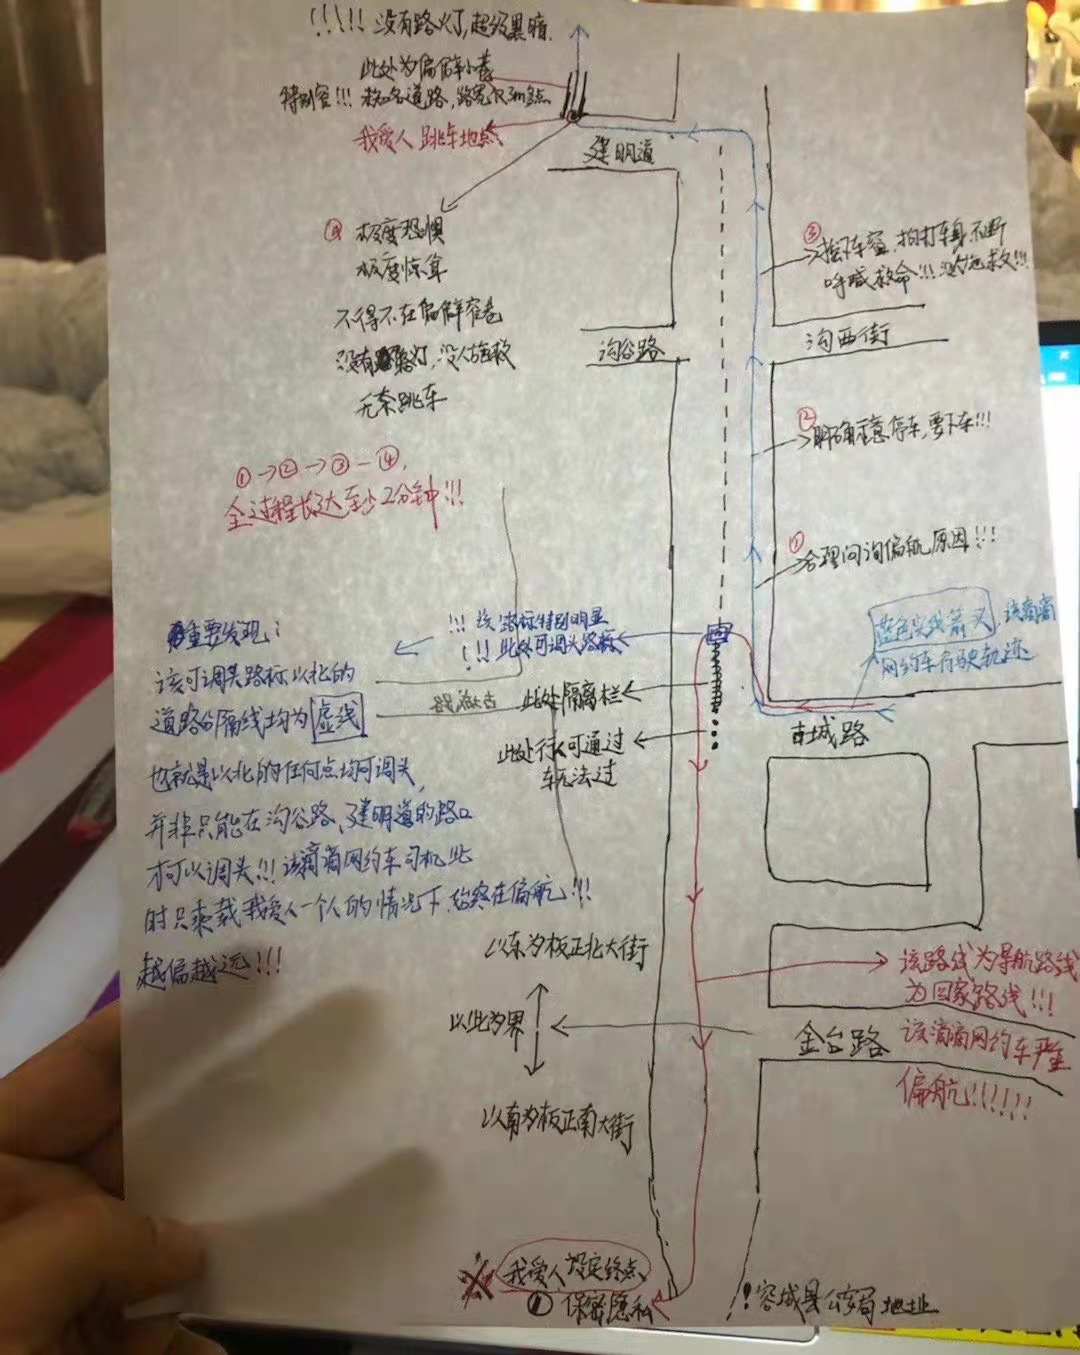 !!!!! 没有路灯,超级黑暗.
此处为偏僻小巷
特别窄!!! 未知名道路,路宽仅3m多点
我爱人 跳车地点
建明道
④ 极度恐惧
极度惊耸
不得不在偏僻窄巷
没有路灯,没人施救
无奈跳车
③
摇下车窗,拍打车身,不断
呼喊救命!!! 没人施救!!!
沟谷路
沟西街
②
明确示意停车,要下车!!!
①→②→③—④,
全过程长达至少2分钟!!!
①
合理问询偏航原因!!!
蓝色实线箭头,该滴滴
网约车行驶轨迹
重要发现:
!!! 该路标特别明显
!!! 此处可调头路标
该可调头路标以北的
道路分隔线均为虚线
也就是以北的任何点均可调头,
并非只能在沟谷路、建明道的路口
才可以调头!!! 该滴滴网约车司机此
时只乘载我爱人一个人的情况下,始终在偏航!!!
越偏越远!!!
此处隔离栏
此处行人可通过
车无法过
城路
以东为板正北大街
以此为界
以南为板正南大街
该路线为导航路线
为回家路线!!!
金台路
该滴滴网约车严重
偏航!!!!!!
我爱人设定终点
保密隐私
容城县公安局地址